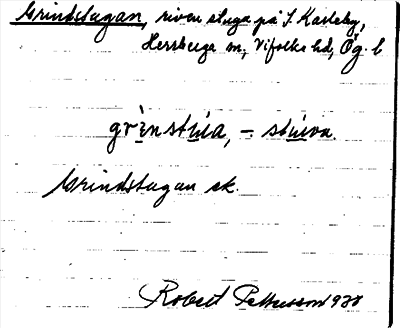 Grindstugan, riven stuga på S. Karleby,
Herrberga sn, Vifolka hd, Ög. l
grinstúa, - stúva
Grindstugan ek.
Robert Pettersson 1930